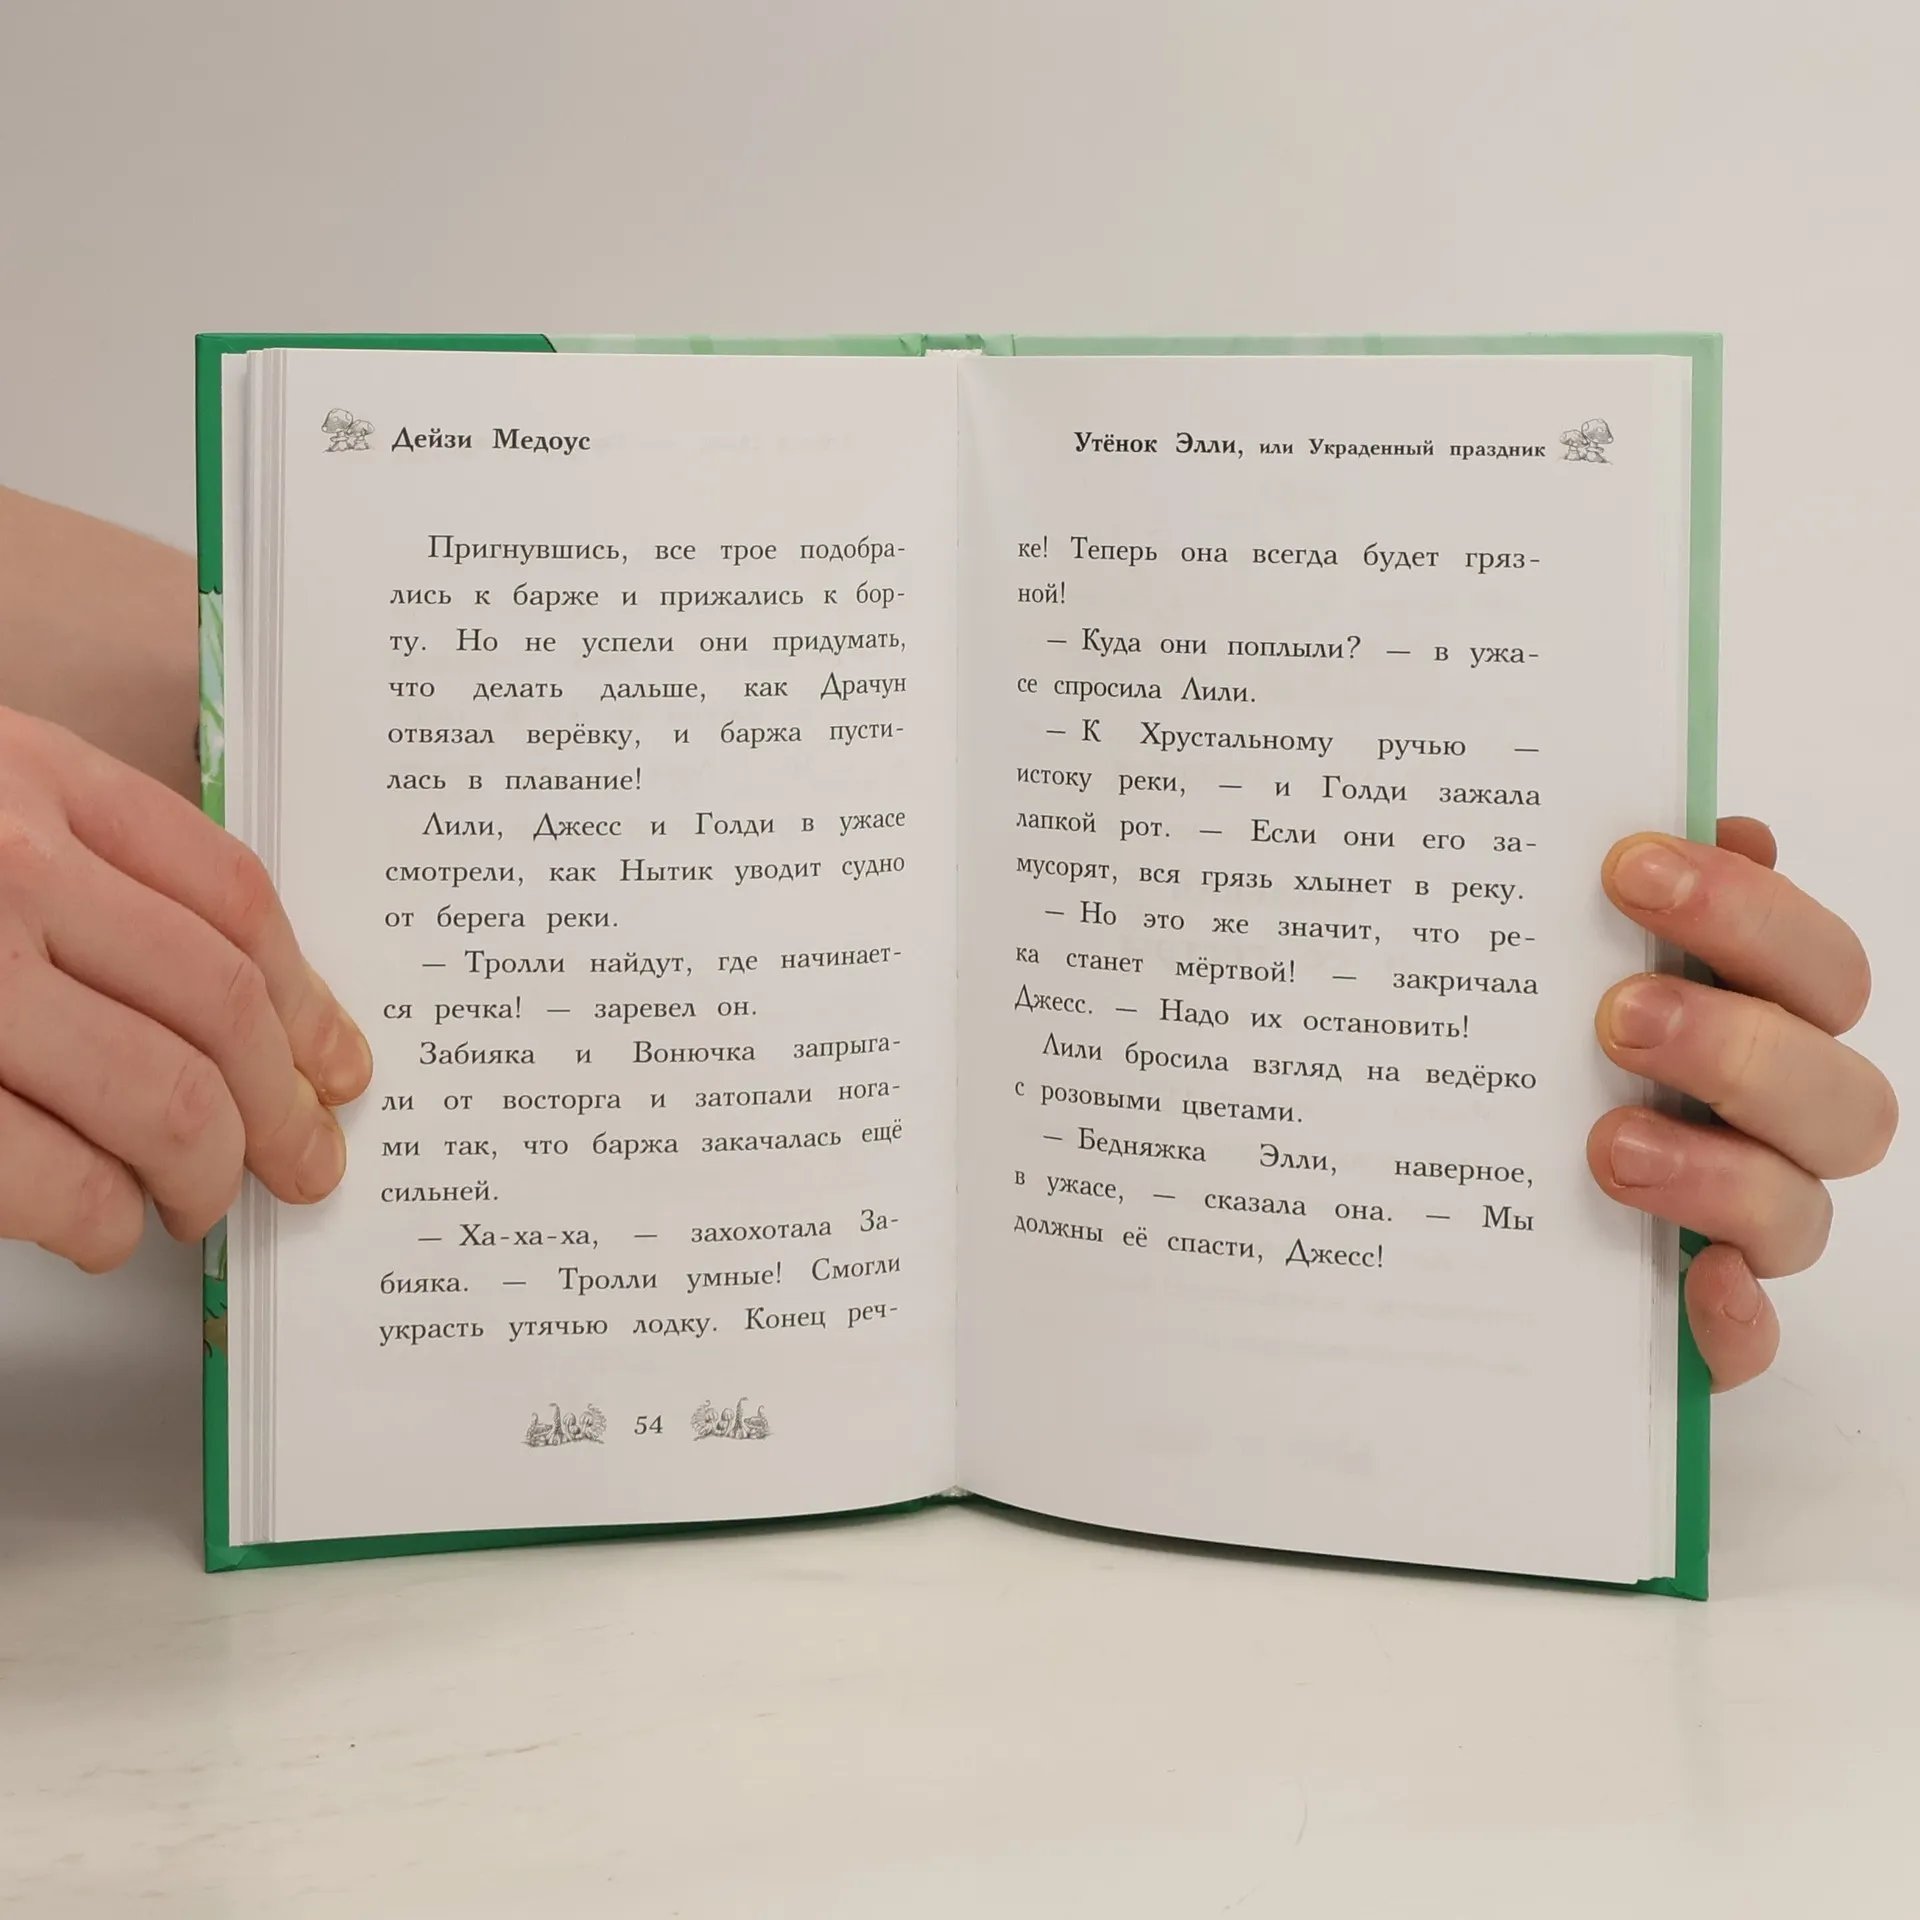 Дейзи Медоус
Пригнувшись, все трое подобра-
лись к барже и прижались к бор-
ту. Но не успели они придумать,
что делать дальше, как Драчун
отвязал верёвку, и баржа пусти-
лась в плавание!
Лили, Джесс и Голди в ужасе
смотрели, как Нытик уводит судно
от берега реки.
— Тролли найдут, где начинает-
ся речка! — заревел он.
Забияка и Вонючка запрыга-
ли от восторга и затопали нога-
ми так, что баржа закачалась ещё
сильней.
— Ха-ха-ха, — захохотала За-
бияка. — Тролли умные! Смогли
украсть утячью лодку. Конец реч-
54
Утёнок Элли, или Украденный праздник
ке! Теперь она всегда будет гряз-
ной!
— Куда они поплыли? — в ужа-
се спросила Лили.
— К Хрустальному ручью —
истоку реки, — и Голди зажала
лапкой рот. — Если они его за-
мусорят, вся грязь хлынет в реку.
— Но это же значит, что ре-
ка станет мёртвой! — закричала
Джесс. — Надо их остановить!
Лили бросила взгляд на ведёрко
с розовыми цветами.
— Бедняжка Элли, наверное,
в ужасе, — сказала она. — Мы
должны её спасти, Джесс!